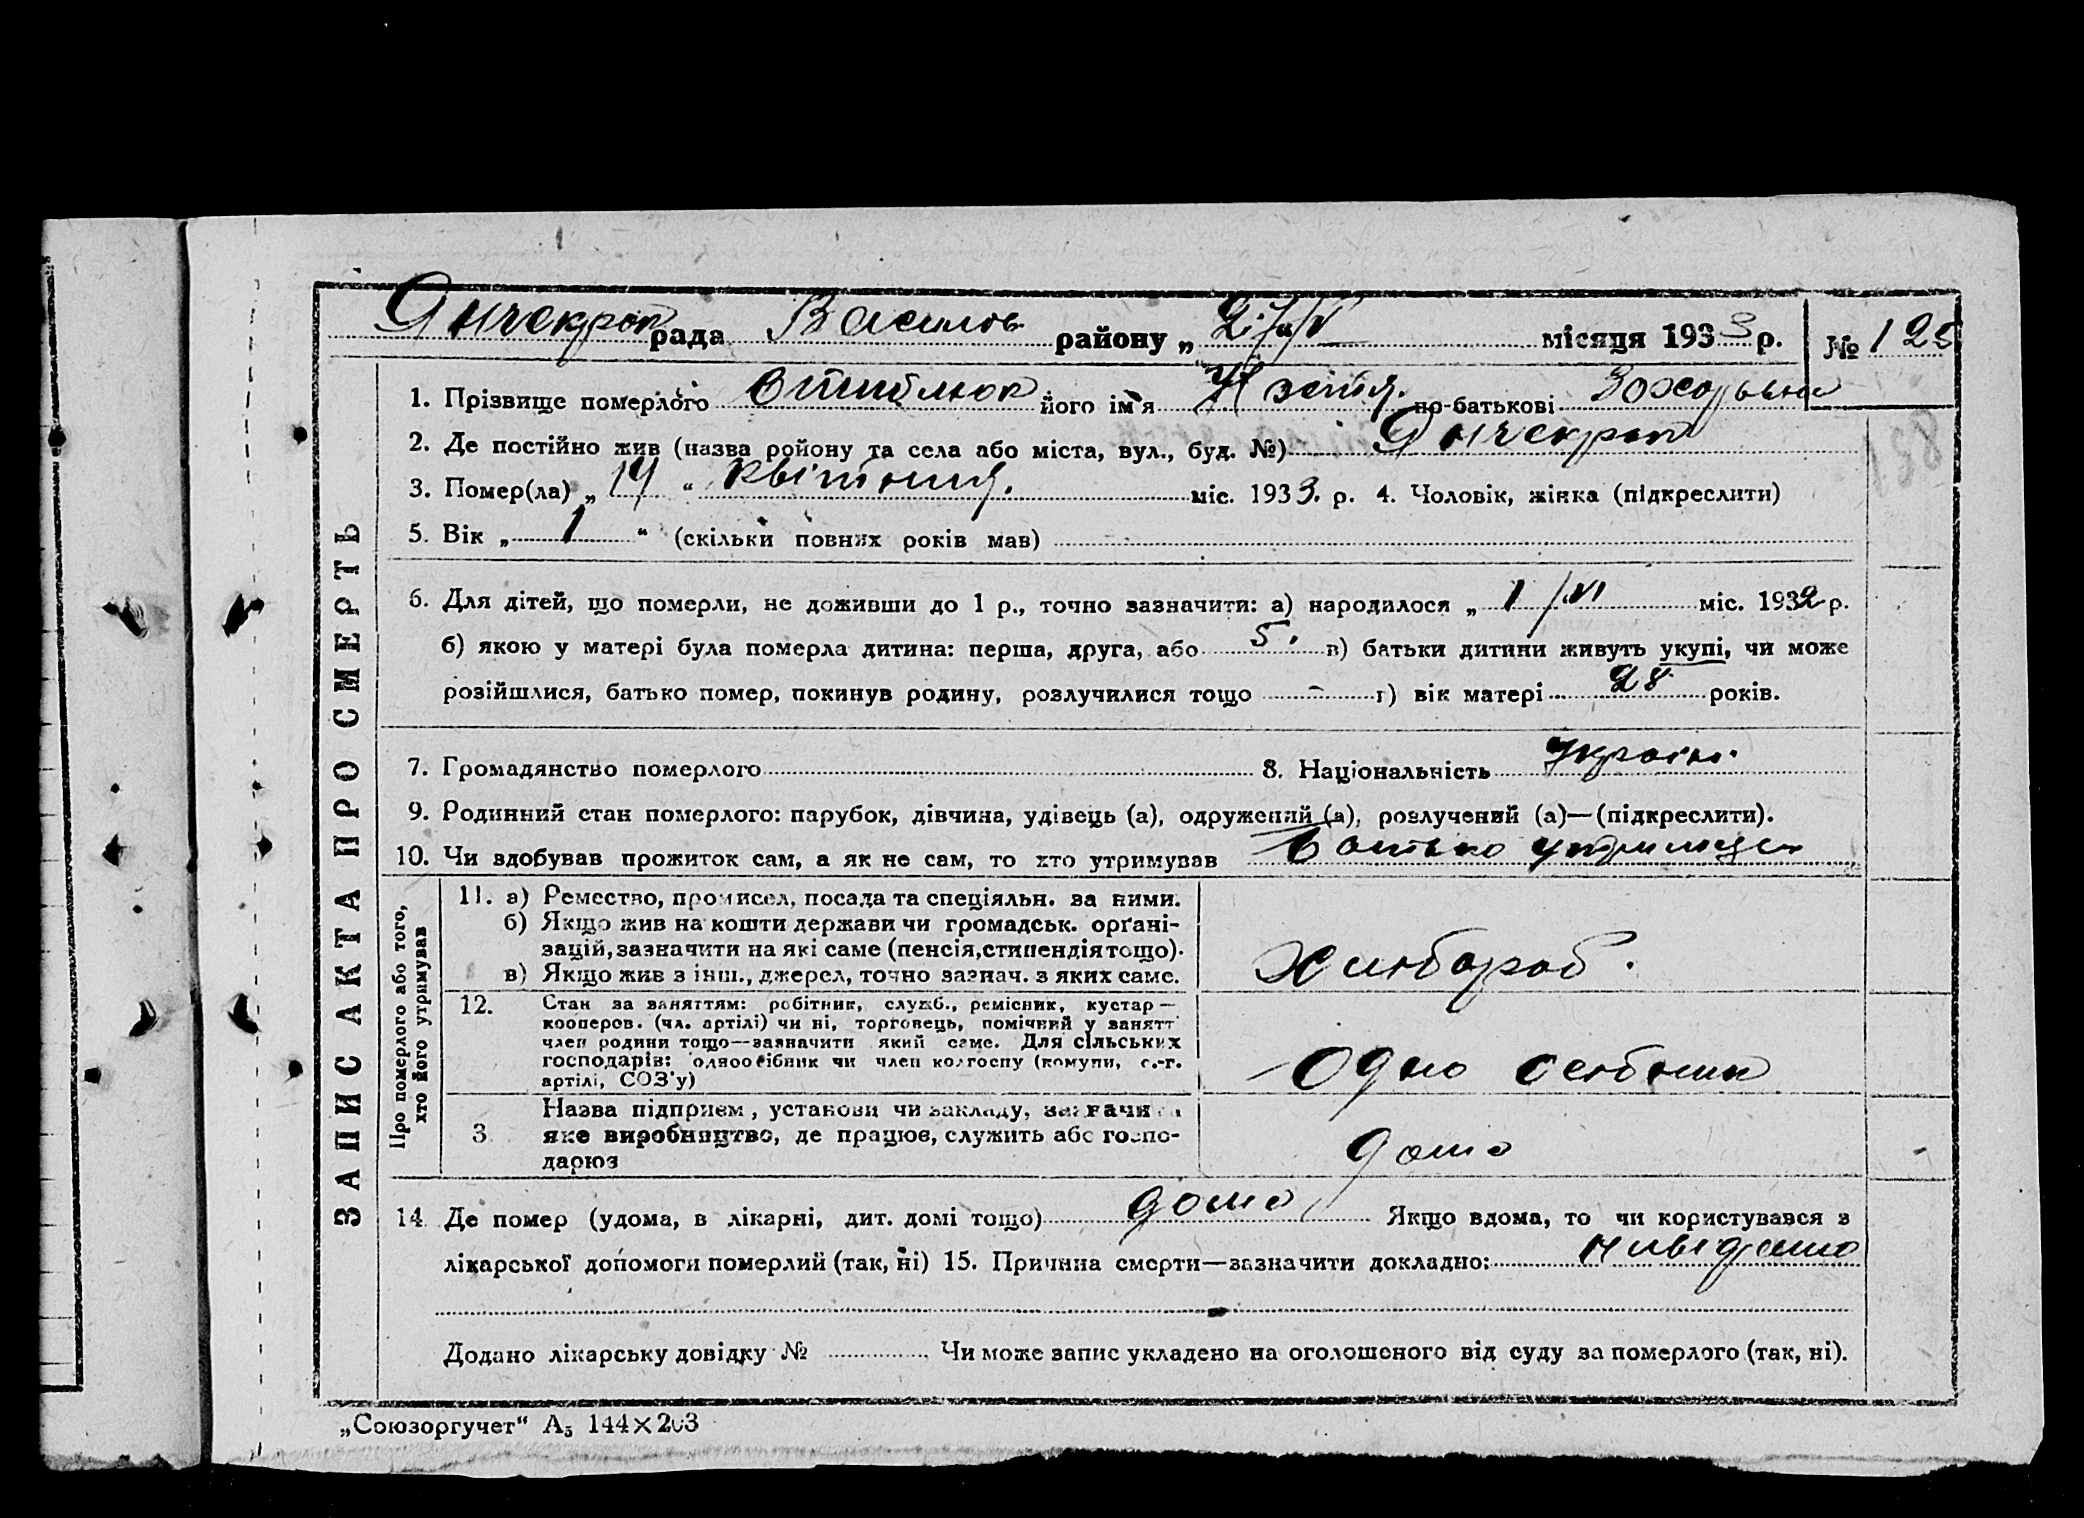 Янчекрак рада Василів району „ 27/IV місяця 1933 р. № 125
ЗАПИС АКТА ПРО СМЕРТЬ
1. Прізвище померлого його ім'я по-батькові Захарьвна
2. Де постійно жив (назва ройону та села або міста, вул., буд. №) Янчекрак
3. Помер(ла) „ 14 “ квітния. міс. 1933. р. 4. Чоловік, жінка (підкреслити)
5. Вік „ 1 “ (скільки повних років мав)
6. Для дітей, що померли, не доживши до 1 р., точно зазначити: а) народилося „ 1/VI міс. 1932 р.
б) якою у матері була померла дитина: перша, друга, або 5. в) батьки дитини живуть укупі, чи може
розійшлися, батько помер, покинув родину, розлучилися тощо - г) вік матері 28 років.
7. Громадянство померлого 8. Національність Україн.
9. Родинний стан померлого: парубок, дівчина, удівець (а), одружений (а), розлучений (а)—(підкреслити).
10. Чи здобував прожиток сам, а як не сам, то хто утримував батько
Про померлого або того,
хто його утримував
11. а) Ремество, промисел, посада та спеціяльн. за ними.
б) Якщо жив на кошти держави чи громадськ. орґані-
зацій, зазначити на які саме (пенсія, стипендія тощо).
в) Якщо жив з інш., джерел, точно зазнач. з яких саме.
хлібороб.
12. Стан за заняттям: робітник, служб., ремісник, кустар—
кооперов. (чл. артілі) чи ні, торговець, помічний у занятт
член родини тощо—зазначити який саме. Для сільських
господарів: одноосібник чи член колгоспу (комуни, с.-г.
артілі, СОЗ'у)
Одно
3 Назва підприєм, установи чи закладу, зазначити
яке виробництво, де працює, служить або госпо-
дарює
дома
14 Де помер (удома, в лікарні, дит. домі тощо) дома Якщо вдома, то чи користувався з
лікарської допомоги померлий (так, ні) 15. Причина смерти—зазначити докладно: нивідамо
Додано лікарську довідку № Чи може запис укладено на оголошеного від суду за померлого (так, ні).
„Союзоргучет“ А₅ 144×203